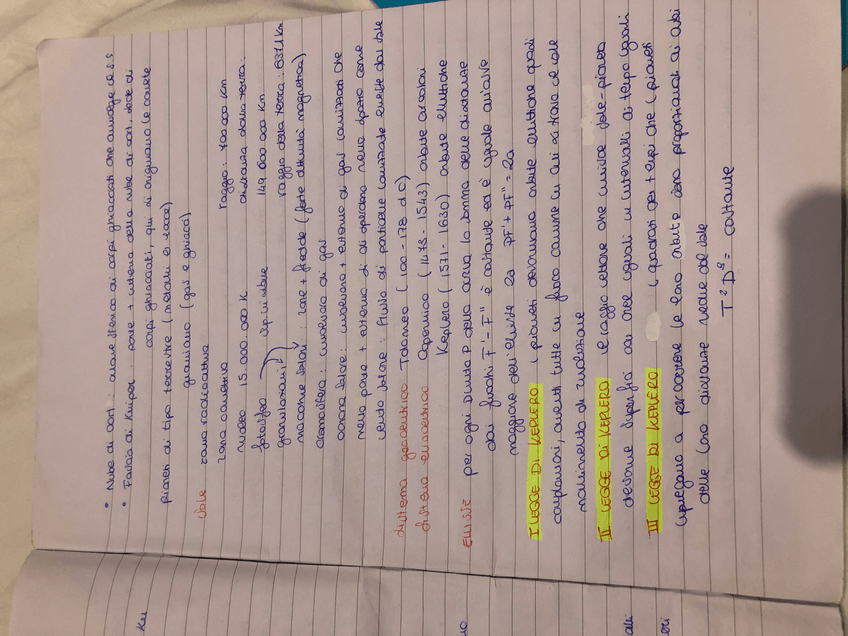 • Nube di oort: alone sferico di corpi ghiacciati che avvolge il S.S
• Fascia di Kuiper: parte + interna della nube di oort, sede di
corpi ghiacciati, qui si originano le comete
pianeti di tipo terrestre (metalli e rocce)
gioviano (gas e ghiacci)
Sole zona radioattiva
zona convettiva raggio: 700.000 Km
nucleo 15.000.000 K distanza dalla terra:
fotosfera 149.600.000 Km
granulazioni raggio della terra: 6371 km
macchie solari: zone + fredde (forte attività magnetica)
cromosfera: involucro di gas
corona solare: involucro + esterno di gas ionizzati che
nella parte + esterna si disperdono nello spazio come
vento solare: flusso di particelle ionizzate emesse dal sole
sistema geocentrico Tolomeo (100-178 d.C)
sistema eliocentrico Copernico (1473-1543) orbite circolari
Keplero (1571-1630) orbite ellittiche
Ellisse per ogni punto P della curva la somma delle distanze
dai fuochi F'-F" è costante ed è uguale all'asse
maggiore dell'ellisse 2a PF'+PF"=2a
I LEGGE DI KEPLERO i pianeti descrivono orbite ellittiche quasi
complanari, aventi tutte un fuoco comune in cui si trova il sole
movimento di rivoluzione
II LEGGE DI KEPLERO il raggio vettore che unisce sole-pianeta
descrive superfici con aree uguali in intervalli di tempo uguali
III LEGGE DI KEPLERO i quadrati dei tempi che i pianeti
impiegano a percorrere le loro orbite sono proporzionali ai cubi
delle loro distanze medie dal sole
T² D³ = costante